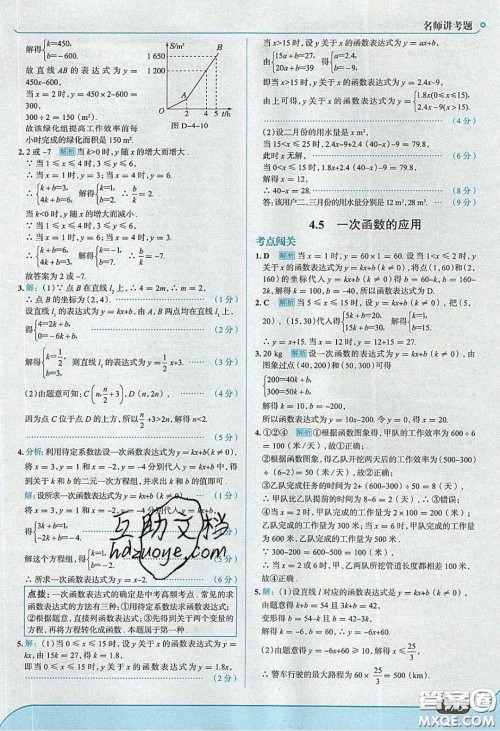 名师讲考题
解得{k=450, b=-600.
故直线 AB 的表达式为 y=
450x-600.
当 x=2 时, y=450×2-600=
300,
300÷2=150 (m²).
故该绿化组提高工作效率前每
小时完成的绿化面积是 150 m².
S/m²
1 650
1 200
A
B
O
2
4 5
t/h
图 D-4-10
2. 2 或 -7 解析 当 k>0 时, y 随 x 的增大而增大.
∴ 当 1≤x≤4 时, 3≤y≤6.
∴ 当 x=1 时, y=3; 当 x=4 时, y=6.
∴ {k+b=3, 4k+b=6. 解得{k=1, b=2. ∴ b/k=2.
当 k<0 时, y 随 x 的增大而减小.
∴ 当 x=1 时, y=6; 当 x=4 时, y=3.
∴ {k+b=6, 4k+b=3. 解得{k=-1, b=7. ∴ b/k=-7.
故答案为 2 或 -7.
3. 解: (1)∵ 点 B 在直线 l₂ 上,
∴ 点 B 的坐标为 (2,4). (1 分)
设直线 l₁ 的表达式为 y=kx+b, 由 A, B 两点均在直线 l₁ 上,
得{4=2k+b, (2 分)
解得{k=1/2, b=3. 则直线 l₁ 的表达式为 y=1/2x+3. (3 分)
(2)由题意可知: C(n, n/2+3), D(n, 2n), (4 分)
因为点 C 位于点 D 的上方, 所以 n/2+3>2n, 解得 n<2.
(5 分)
4. 分析: 利用待定系数法设一次函数表达式为 y=kx+b(k≠0),
将 x=3, y=1 和 x=-2, y=-4 分别代入 y=kx+b 中, 得
到关于 k 与 b 的二元一次方程组, 并求出 k 和 b 的值即可.
解: 设所求一次函数表达式为 y=kx+b (k≠0). (1 分)
将 x=3, y=1 和 x=-2, y=-4 分别代入 y=kx+b,
得{3k+b=1, -2k+b=-4. (4 分)
解这个方程组, 得{k=1, b=-2. (5 分)
∴ 所求一次函数表达式为 y=x-2. (6 分)
点拨: 一次函数表达式的确定是中考高频考点. 常见的求
函数表达式的方法有三种: ①用待定系数法求函数表达式;
②根据题意, 直接列函数表达式; ③先得到关于两个变量的
方程, 再将方程转化成函数. 本题属于第一种.
5. 解: (1)当 0≤x≤15 时, 设 y 关于 x 的函数表达式为 y=
kx, 由 15k=27, 得 k=1.8.
即当 0≤x≤15 时, y 关于 x 的函数表达式为 y=1.8x,
(2 分)
当 x>15 时, 设 y 关于 x 的函数表达式为 y=ax+b,
由{15a+b=27, 20a+b=39 得{a=2.4, b=-9.
即当 x>15 时, y 关于 x 的函数表达式为 y=2.4x-9,
由上可得, y 关于 x 的函数表达式为{1.8x(0≤x≤15), 2.4x-9(x>15).
(4 分)
(2)设二月份的用水量是 x m³,
当 15<x≤25 时, 2.4x-9+2.4(40-x)-9=79.8,
此时 x 无解, (6 分)
当 0<x≤15 时, 1.8x+2.4 (40-x)-9=79.8,
解得 x=12,
∴ 40-x=28. (8 分)
答: 该用户二、三月份的用水量分别是 12 m³, 28 m³. (9 分)
4.5 一次函数的应用
考点闯关
1. D 解析 当 x=1 时, y=60×1=60. 设当 1<x≤2 时, y
关于 x 的函数表达式为 y=kx+b (k≠0), 将点(1,60)和(2,
160)的坐标代入 y=kx+b 得 60=k+b, 160=2k+b,
解得 k=100. 故选 D.
2. C 解析 当 5≤x≤15 时, 设 y=kx+b(k≠0), 把 (5,
15), (15,30)代入得{5k+b=15, 15k+b=30, 解得{k=1.5, b=7.5.
∴ y=1.5x+7.5. 当 x=3 时, y=12, ∴ y=12+15=27.
3. 20 kg 解析 设一次函数的表达式为 y=kx+b (k≠0), 由
图象过点(40,200)和 (50,300)可得
{200=40k+b, 300=50k+b,
解得 k=10, b=-200,
所以函数表达式为 y=10x-200. 令 y=0, 得 x=20.
4. ①②④ 解析 ①根据函数图象得, 甲队的工作效率为 600÷6
=100(米/天), 故①正确;
②根据函数图象, 得乙队开挖两天后的工作效率为(500-300)
÷(6-2)=50(米/天), 故②正确;
③乙队完成任务的时间为 2+(600-300)÷50=8(天),
∴ 甲队比乙队提前的时间为 8-6=2(天), ∴ ③错误;
④当 x=2 时, 甲队完成的工作量为 2×100=200(米),
乙队完成的工作量为 300 米. 当 x=6 时, 甲队完成的工作量为
600 米, 乙队完成的工作量为 500 米.
∵ 300-200=600-500=100(米),
∴ 当 x=2 或 6 时, 甲、乙两队所挖管道长度都相差 100 米.
故④正确.
5. 解: (1)设直线 l 对应的函数表达式是 y=kx+b(k≠0),
由题意得 k+b=54 且 3k+b=42,
变形得 b=54-k=42-3k,
解得 k=-6, b=60.
∴ y=-6x+60.
(2)由题意得 y=-6x+60≥10, 解得 x≤25/3,
∴ 警车行驶的最大路程为 60×25/3=500 (km).
互助文档
hdzuoye.com
答案圈
MXQE.COM